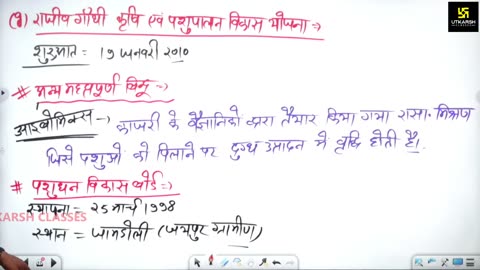 (9) राजीव गाँधी कृषि एवं पशुपालन विकास योजना :→
शुरुआत = 19 जनवरी 2010
UTKARSH
# अन्य महत्वपूर्ण बिन्दु :→
आइवोमिक्स :→ काजरी के वैज्ञानिको द्वारा तैयार किया गया रासा. मिश्रण
जिसे पशुओ को पिलाने पर दुग्ध उत्पादन मे वृद्धि होती है।
# पशुधन विकास बोर्ड :→
स्थापना = 25 मार्च 1998
KARSH CLASSES
स्थान = जामडोली (जयपुर ग्रामीण)